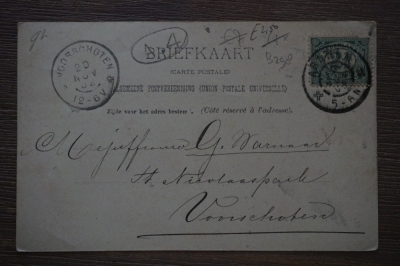 A
E45
BRIEFKAART
(CARTE POSTALE)
ALGEMEENE POSTVEREENIGING (UNION POSTALE UNIVERSELLE)
Zijde voor het adres bestemd. (Côté réservé à l'adresse.)
VOORSCHOTEN
20
NOV
12-6V
5-6N
Mejuffrouw G. Warnaar
St. Nicolaaspark
Voorschoten